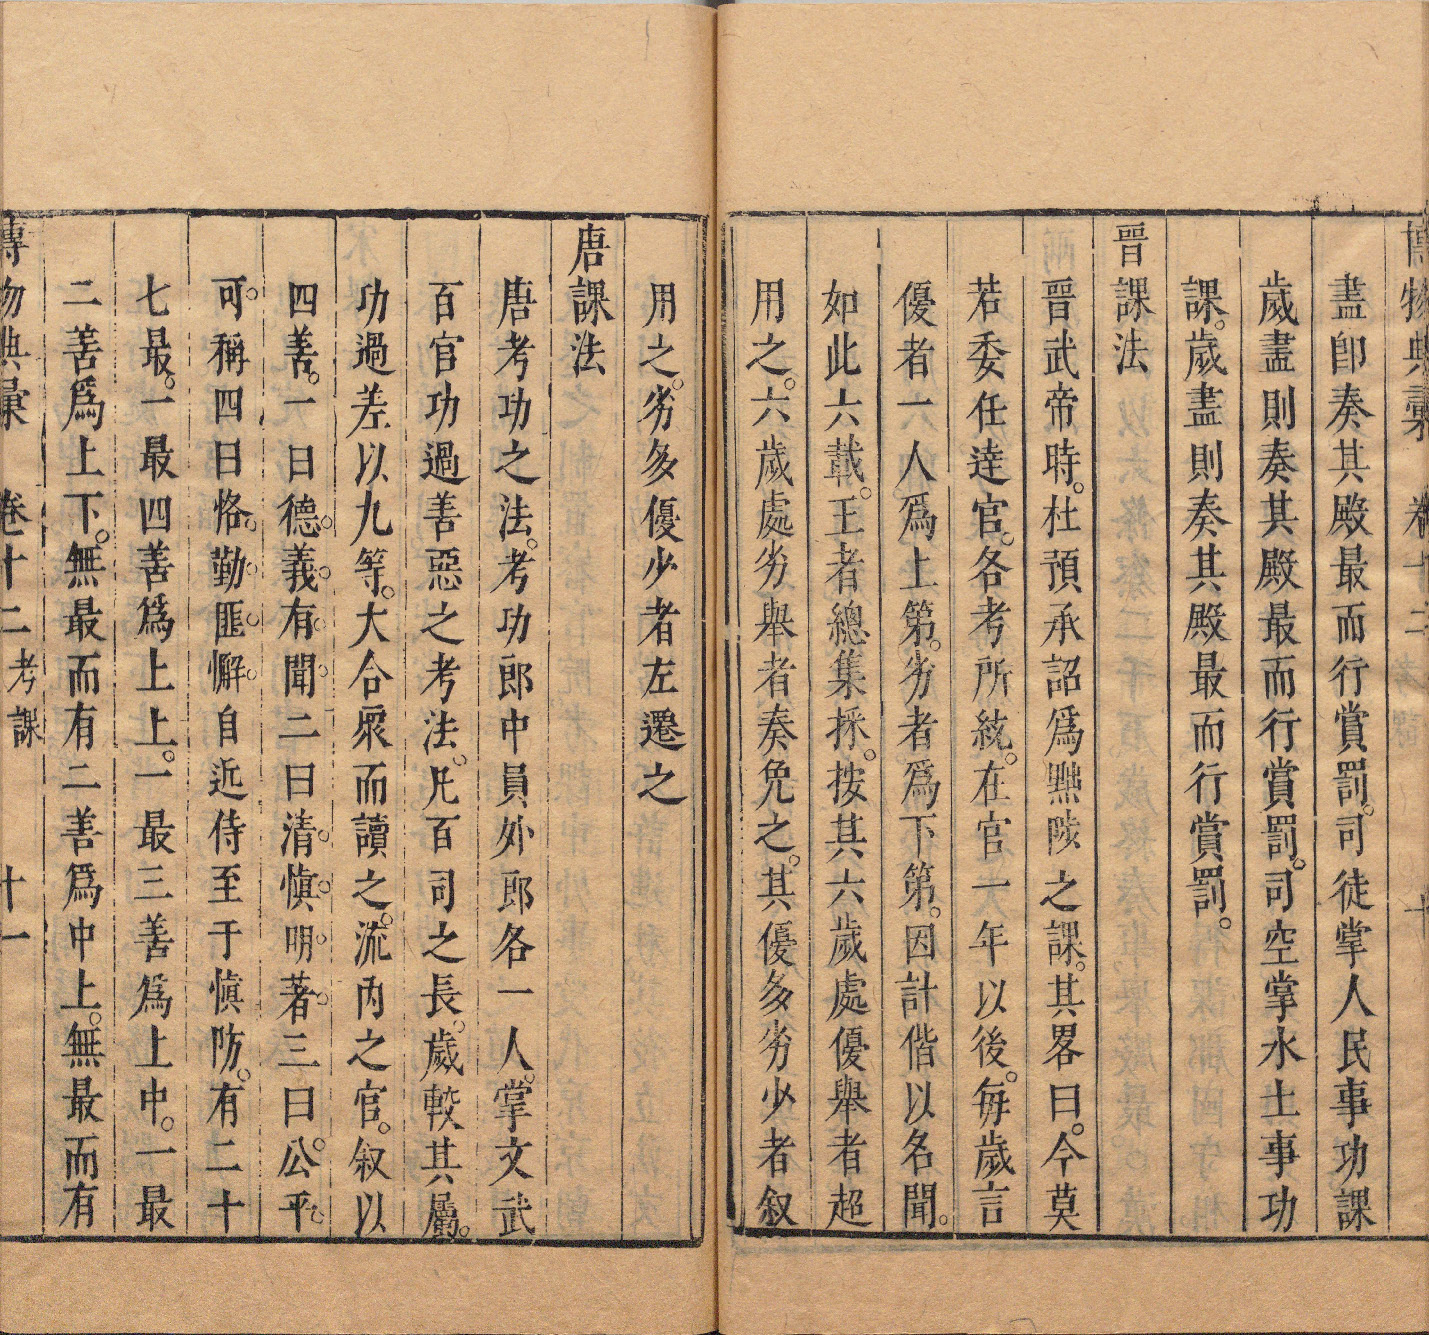 博物典彙 卷十二
盡卽奏其殿最而行賞罰。司徒掌人民事功課
歲盡則奏其殿最而行賞罰。司空掌水土事功
課。歲盡則奏其殿最而行賞罰。
晉課法
晉武帝時。杜預承詔爲黜陟之課。其畧曰。今莫
若委任逹官。各考所統。在官一年以後。每歲言
優者一人爲上第。劣者爲下第。因計偕以名聞。
如此六載。王者總集採。按其六歲處優舉者超
用之。六歲處劣舉者奏免之。其優多劣少者叙
用之。劣多優少者左遷之
唐課法
唐考功之法。考功郎中員外郎各一人。掌文武
百官功過善惡之考法。凡百司之長。歲較其屬。
功過差以九等。大合衆而讀之。流內之官。叙以
四善。一曰德。義。有。聞。二曰清。愼。明。著。三曰公。平。
可。稱四曰恪。勤。匪。懈。自近侍至于愼防。有二十
七最。一最四善爲上上。一最三善爲上中。一最
二善爲上下。無最而有二善爲中上。無最而有
博物典彙 卷十二 考課 十一